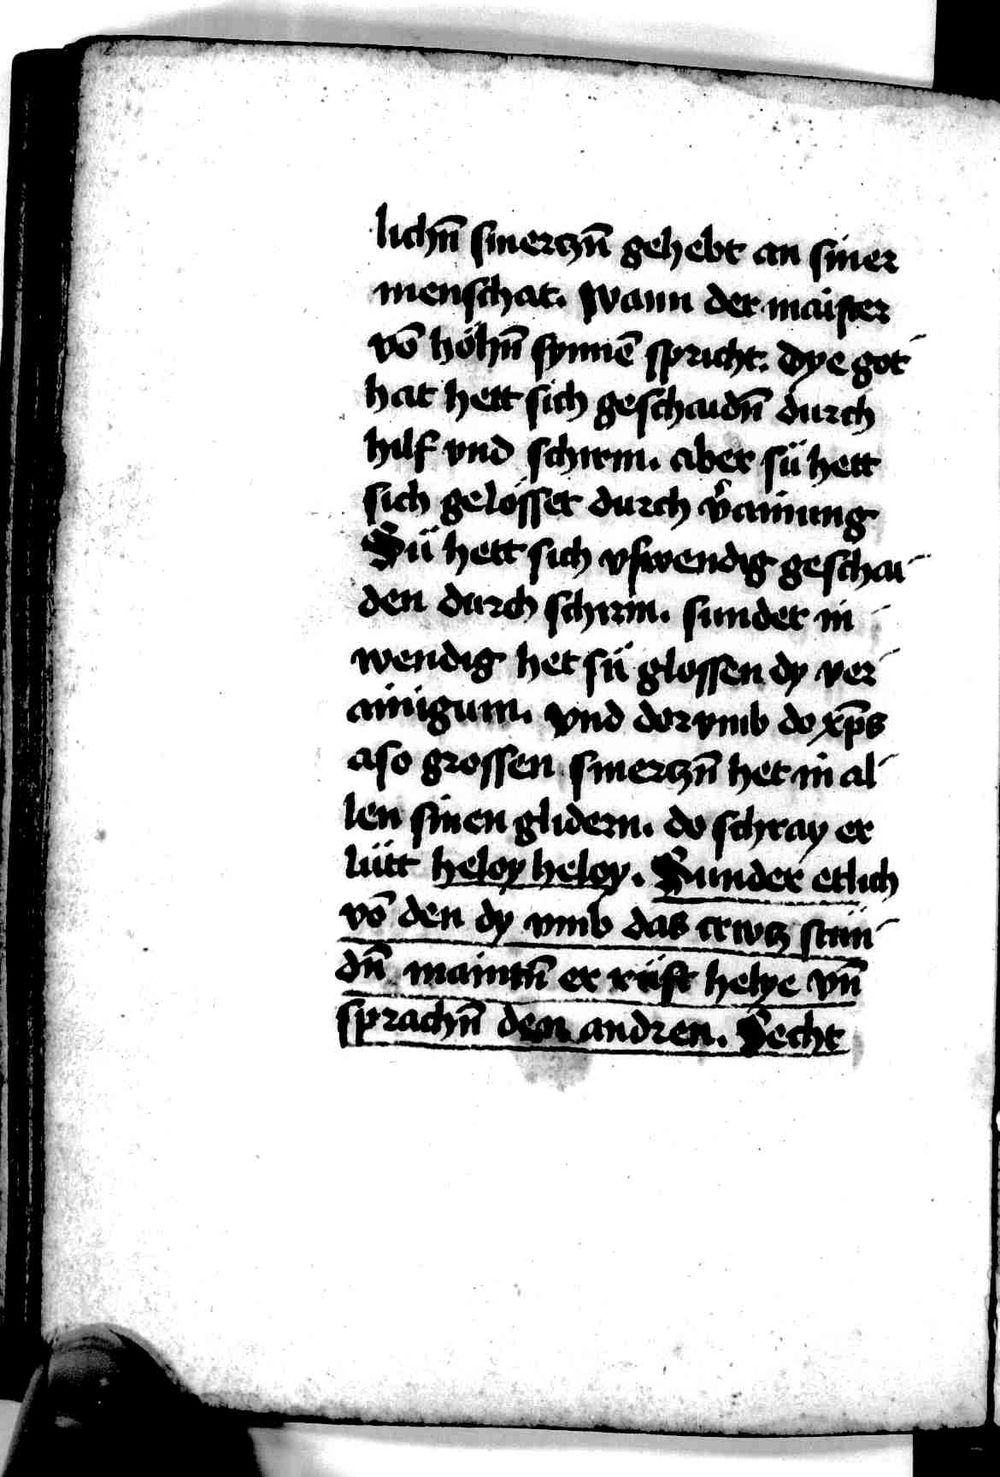 lichn̄ smerczn̄ gehebt an siner
menschat. Wann der maister
vō höhn̄ synnē spricht. Dye got
hat hett sich geschaidn̄ durch
hilf vnd schirm. aber sü hett
sich gelösset durch v̄ainung
Sü hett sich vswendig geschai
den durch schirm. sunder in
wendig het sü glossen dy ver
ainigum. Vnd dorvmb do xp̄s
aso grossen smerczn̄ het in al
len sinen glidern. do schray er
lütt heloy heloy. Sunder etlich
vō den dy vmb das crwcz stün
dn̄ maintn̄ er rüft helye vn̄
sprachn̄ den andren. Secht